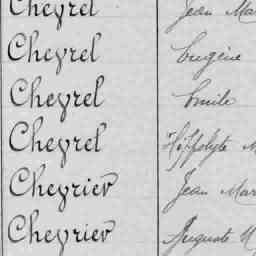 Cheyrel Jean Mar
Cheyrel Eugène
Cheyrel Emile
Cheyrel Hippolyte M
Cheyrier Jean Mar
Cheyrier Auguste M